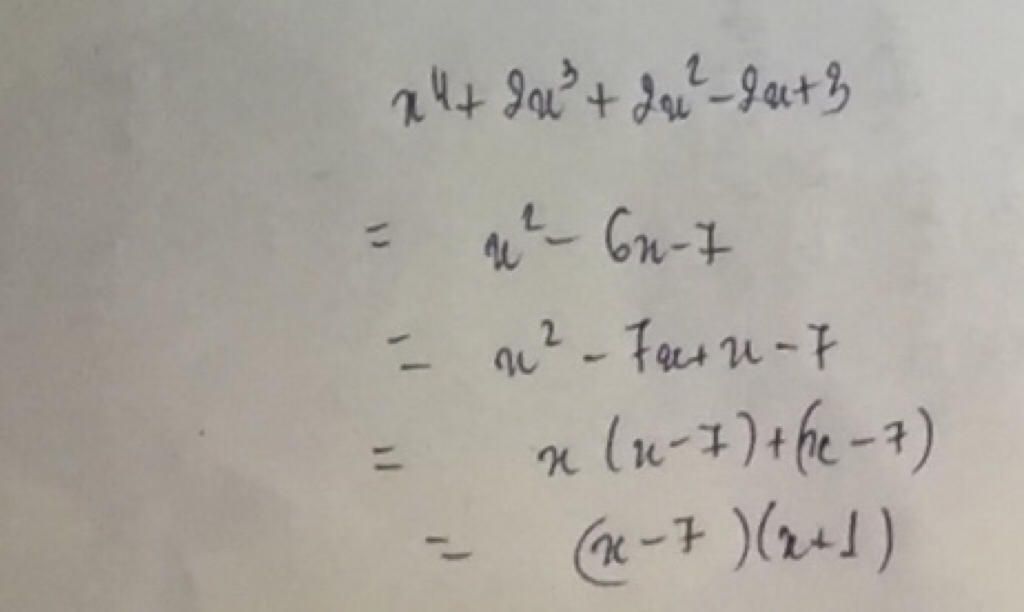 x⁴ + 2x³ + 2x² - 2x + 3
= x² - 6x - 7
= x² - 7x + x - 7
= x (x - 7) + (x - 7)
= (x - 7)(x + 1)